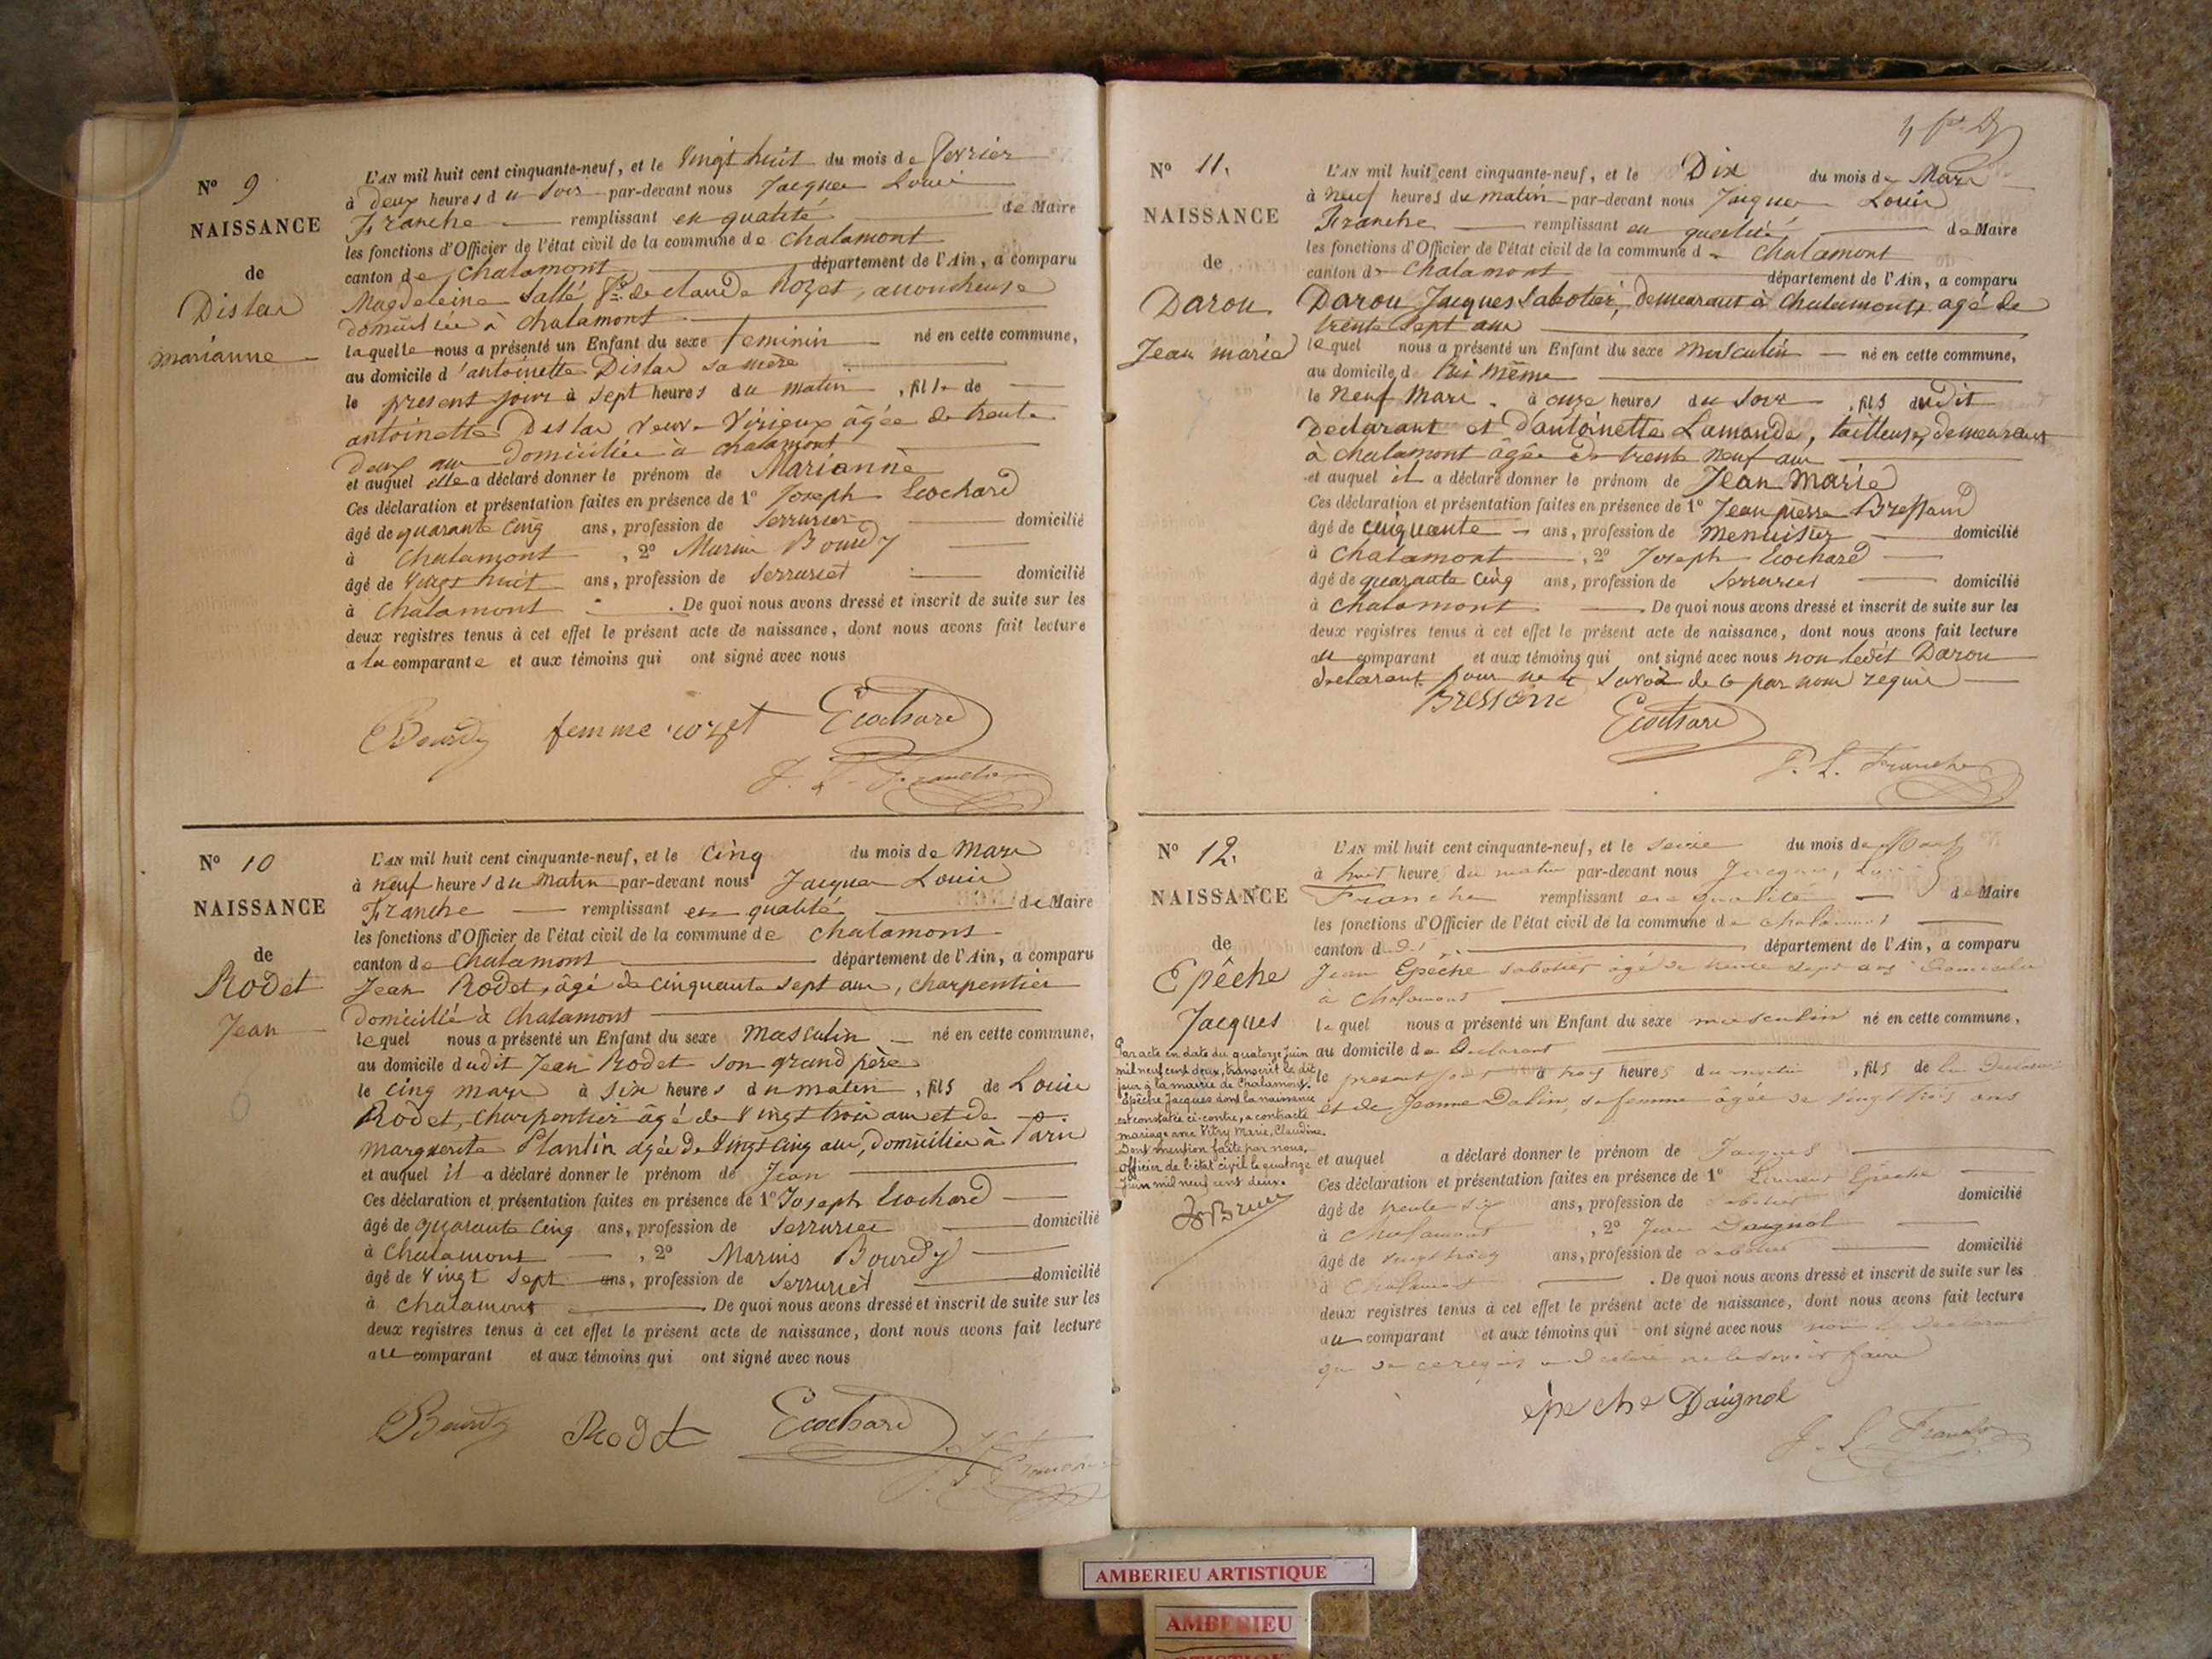 Nº 9
NAISSANCE
de
Distar
marianne
L'AN mil huit cent cinquante-neuf, et le Vingt huit du mois de fevrier
à deux heures du soir par-devant nous Jacques Louis
Franche remplissant en qualité de Maire
les fonctions d'Officier de l'état civil de la commune de Chalamont
canton de Chalamont département de l'Ain, a comparu
Magdeleine Sallé, de Claude Rozet, accoucheuse
domiciliée à Chalamont
laquelle nous a présenté un Enfant du sexe feminin né en cette commune,
au domicile d'antoinette Distar sa mère
le present jour à sept heures du matin, fils de
antoinette Distar Veuve Virieux âgée de trente
deux ans domiciliée à Chalamont
et auquel elle a déclaré donner le prénom de Marianne
Ces déclaration et présentation faites en présence de 1º Joseph Ecochard
âgé de quarante cinq ans, profession de Serrurier domicilié
à Chalamont, 2º Marin Bourdy
âgé de vingt huit ans, profession de Serrurier domicilié
à Chalamont. De quoi nous avons dressé et inscrit de suite sur les
deux registres tenus à cet effet le présent acte de naissance, dont nous avons fait lecture
a la comparante et aux témoins qui ont signé avec nous
Bourdy femme rozet Ecochard
J. L. Franche
Nº 10
NAISSANCE
de
Rodet
Jean
L'AN mil huit cent cinquante-neuf, et le Cinq du mois de Mars
à neuf heures du matin par-devant nous Jacques Louis
Franche remplissant en qualité de Maire
les fonctions d'Officier de l'état civil de la commune de Chalamont
canton de Chalamont département de l'Ain, a comparu
Jean Rodet, âgé de cinquante sept ans, charpentier
domicilié à Chalamont
lequel nous a présenté un Enfant du sexe Masculin né en cette commune,
au domicile dudit Jean Rodet son grand père
le cinq mars à six heures du matin, fils de Louis
Rodet, charpentier âgé de vingt trois ans et de
marguerite Plantin agée de vingt cinq ans, domiciliés à Paris
et auquel il a déclaré donner le prénom de Jean
Ces déclaration et présentation faites en présence de 1º Joseph Ecochard
âgé de quarante cinq ans, profession de Serrurier domicilié
à Chalamont, 2º Marius Bourdy
âgé de vingt sept ans, profession de Serrurier domicilié
à Chalamont. De quoi nous avons dressé et inscrit de suite sur les
deux registres tenus à cet effet le présent acte de naissance, dont nous avons fait lecture
au comparant et aux témoins qui ont signé avec nous
Bourdy Rodet Ecochard
Nº 11.
NAISSANCE
de
Darou
Jean marie
L'AN mil huit cent cinquante-neuf, et le Dix du mois de Mars
à neuf heures du matin par-devant nous Jacques Louis
Franche remplissant en qualité de Maire
les fonctions d'Officier de l'état civil de la commune de Chalamont
canton de Chalamont département de l'Ain, a comparu
Darou Jacques Sabotier, demeurant à Chalamont, agé de
trente sept ans
lequel nous a présenté un Enfant du sexe Masculin né en cette commune,
au domicile de lui même
le Neuf Mars à onze heures du soir, fils dudit
Declarant et d'antoinette Lamande, tailleuse, demeurant
à Chalamont âgée de trente neuf ans
et auquel il a déclaré donner le prénom de Jean Marie
Ces déclaration et présentation faites en présence de 1º Jean pierre Bressand
âgé de cinquante ans, profession de Menuisier domicilié
à Chalamont, 2º Joseph Ecochard
âgé de quarante cinq ans, profession de Serrurier domicilié
à Chalamont. De quoi nous avons dressé et inscrit de suite sur les
deux registres tenus à cet effet le présent acte de naissance, dont nous avons fait lecture
au comparant et aux témoins qui ont signé avec nous non ledit Darou
declarant pour ne le savoir de ce par nous requis
Ecochard
J. L. Franche
Nº 12.
NAISSANCE
de
Epêche
Jacques
Par acte en date du quatorze juin
mil neuf cent deux, transcrit le dit
jour à la mairie de Chalamont,
Epêche Jacques dont la naissance
est constatée ci-contre, a contracté
mariage avec Vitry Marie, Claudine.
Dont mention faite par nous,
officier de l'état civil le quatorze
Juin mil neuf cent deux.
L'AN mil huit cent cinquante-neuf, et le seize du mois de Mars
à huit heures du matin par-devant nous Jacques, Louis
Franche remplissant en qualité de Maire
les fonctions d'Officier de l'état civil de la commune de Chalamont
canton de département de l'Ain, a comparu
Jean Epêche sabotier âgé de trente sept ans domicilié
à Chalamont
lequel nous a présenté un Enfant du sexe masculin né en cette commune,
au domicile du declarant
le present jour à trois heures du matin, fils de
et de Jeanne Dalin, sa femme âgée de vingt trois ans
et auquel a déclaré donner le prénom de Jacques
Ces déclaration et présentation faites en présence de 1º Laurent Epêche
âgé de trente six ans, profession de sabotier domicilié
à Chalamont, 2º Jean Daignol
âgé de ans, profession de sabotier domicilié
à Chalamont. De quoi nous avons dressé et inscrit de suite sur les
deux registres tenus à cet effet le présent acte de naissance, dont nous avons fait lecture
au comparant et aux témoins qui ont signé avec nous non le declarant
qui de ce requis a declaré ne le savoir faire
épeche Daignol
J. L. Franche
AMBERIEU ARTISTIQUE
AMBERIEU
ARTISTIQUE